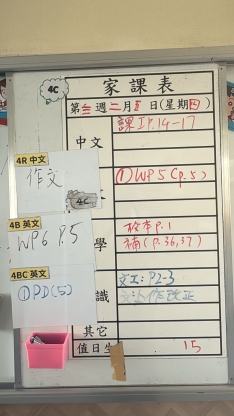 4C
家課表
第三週二月 日(星期四)
中文
課工P.14-17
4R 中文
作文
①WP5(p.5)
4C
4B 英文
WP6 P.5
學
校本P.1
補(P.36,37)
4BC 英文
①PD(5)
識
文工:P2-3
其它
值日生
15